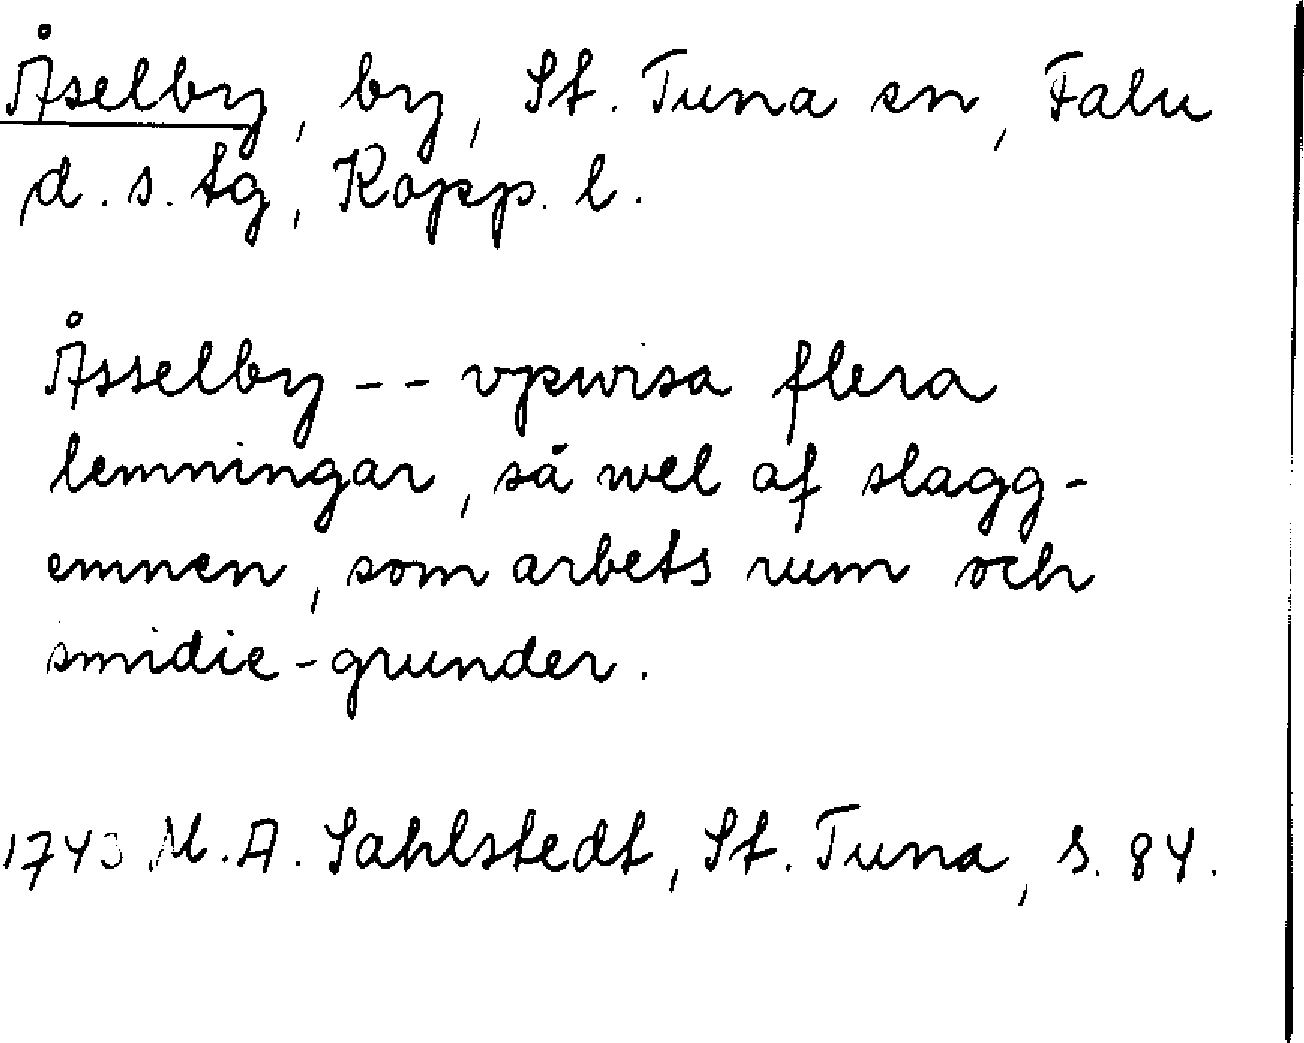 Åselby, by, St. Tuna sn, Falu
d.s. tg, Kopp. l.
Åsselby -- vpwisa flera
lemningar, så wel af slagg-
emnen, som arbets rum och
smidie-grunder.
1743 M.A. Sahlstedt, St. Tuna, s. 84.